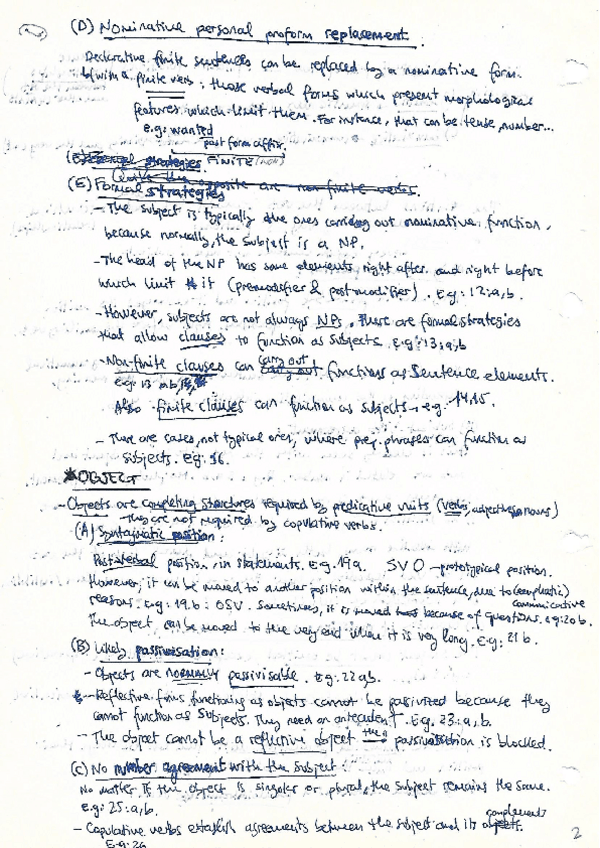 (D) Nominative personal proform replacement.
Declarative finite sentences can be replaced by a nominative form.
with a finite verb: those verbal forms which present morphological
features which limit them. For instance, that can be tense, number...
e.g: wanted
past form affix.
strategies FINITE (non)
the opposite are non finite verbs.
(E) Formal strategies
- The subject is typically the ones carrying out nominative function,
because normally, the subject is a NP.
- The head of the NP has some elements right after and right before
which limit it (premodifier & postmodifier). Eg: 12:a,b.
- However, subjects are not always NPs. There are formal strategies
that allow clauses to function as subjects. Eg: 13:a,b
- Non-finite clauses can carry out functions as sentence elements.
eg: 13 a,b,
Also finite clauses can function as subjects, e.g. 14,15.
- There are cases, not typical ones, where prep. phrases can function as
subjects. Eg: 16.
* OBJECT
- Objects are completing structures required by predicative units (verbs, adjectives, nouns)
- They are not required by copulative verbs.
(A) Syntagmatic position:
Postverbal position in statements. Eg. 19a. SVO - prototypical position.
However, it can be moved to another position within the sentence, due to (emphatic)
communicative
reasons. Eg: 19.b: OSV. Sometimes, it is moved because of questions. eg: 20b.
The object can be moved to the very end when it is very long. Eg: 21 b.
(B) Likely passivisation:
- Objects are normally passivisable. Eg: 22 a,b.
- Reflective forms functioning as objects cannot be passivized because they
cannot function as subjects. They need an antecedent. Eg. 23: a, b.
- The object cannot be a reflective object then passivisation is blocked.
(C) No number agreement with the subject:
No matter if the object is singular or plural, the subject remains the same.
E.g: 25: a, b.
complements
- Copulative verbs establish agreements between the subject and its objects.
E.g: 26
2